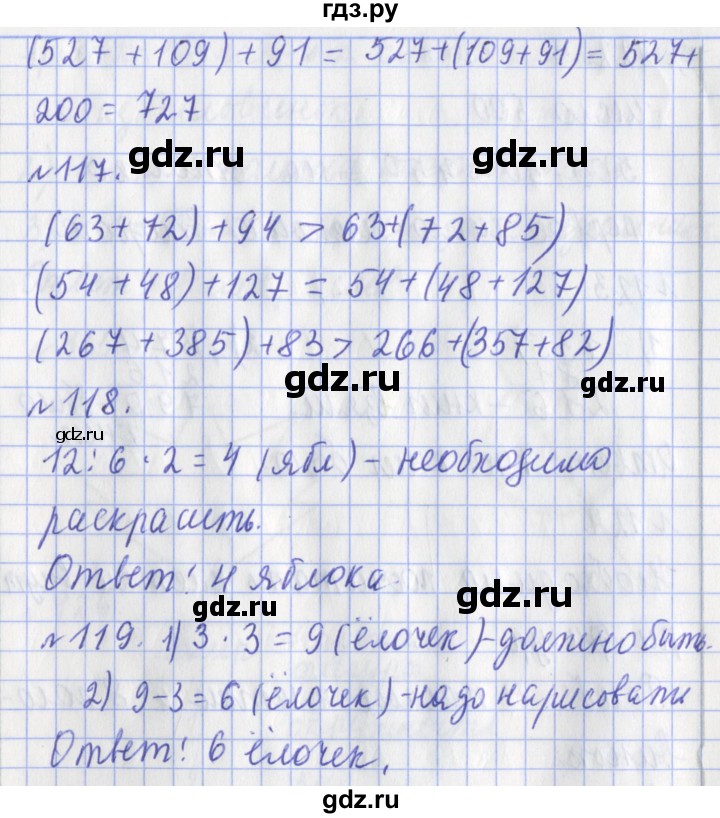 гдз.ру
(527 + 109) + 91 = 527+(109+91) = 527+
200 = 727
gdz.ru gdz.ru
№117.
(63+72)+94 > 63+(72+85)
(54+48)+127 = 54+(48+127)
(267+385)+83 > 266+(357+82)
gdz.ru gdz.ru
№118.
gdz.ru
12:6·2=4 (ябл) - необходимо
раскрасить.
Ответ! 4 яблока.
gdz.ru gdz.ru
№119. 1) 3·3=9 (ёлочек) - должно быть.
2) 9-3=6 (ёлочек) - надо нарисовать
Ответ! 6 ёлочек.
gdz.ru gdz.ru
gdz.ru